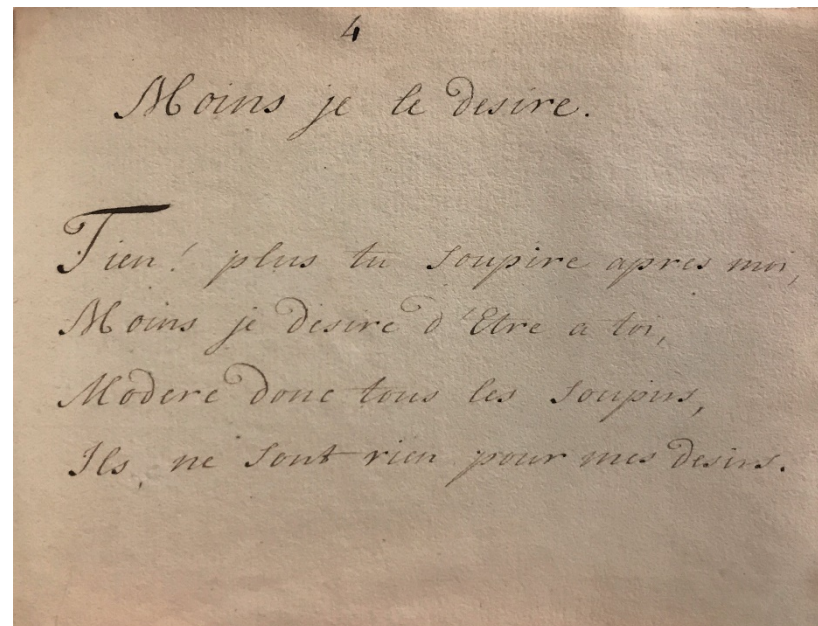 4
Moins je le desire.
Tien! plus tu soupire apres moi,
Moins je desire d'Etre a toi,
Modere donc tous les soupirs,
Ils, ne sont rien pour mes desirs.